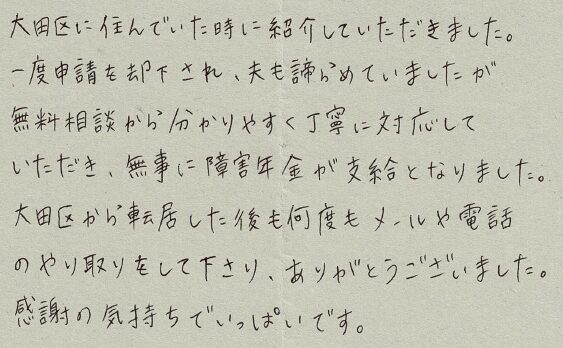 大田区に住んでいた時に紹介していただきました。
一度申請を却下され、夫も諦らめていましたが
無料相談から分かりやすく丁寧に対応して
いただき、無事に障害年金が支給となりました。
大田区から転居した後も何度もメールや電話
のやり取りをして下さり、ありがとうございました。
感謝の気持ちでいっぱいです。